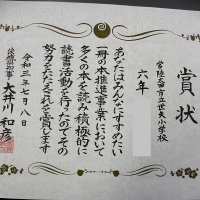 賞状
常陸太田市立世矢小学校
六年
あなたはみんなにすすめたい
一冊の本推進事業において
多くの本を読み積極的に
読書活動を行ったのでその
努力をたたえこれを賞します
令和三年七月八日
茨城県知事 大井川和彦